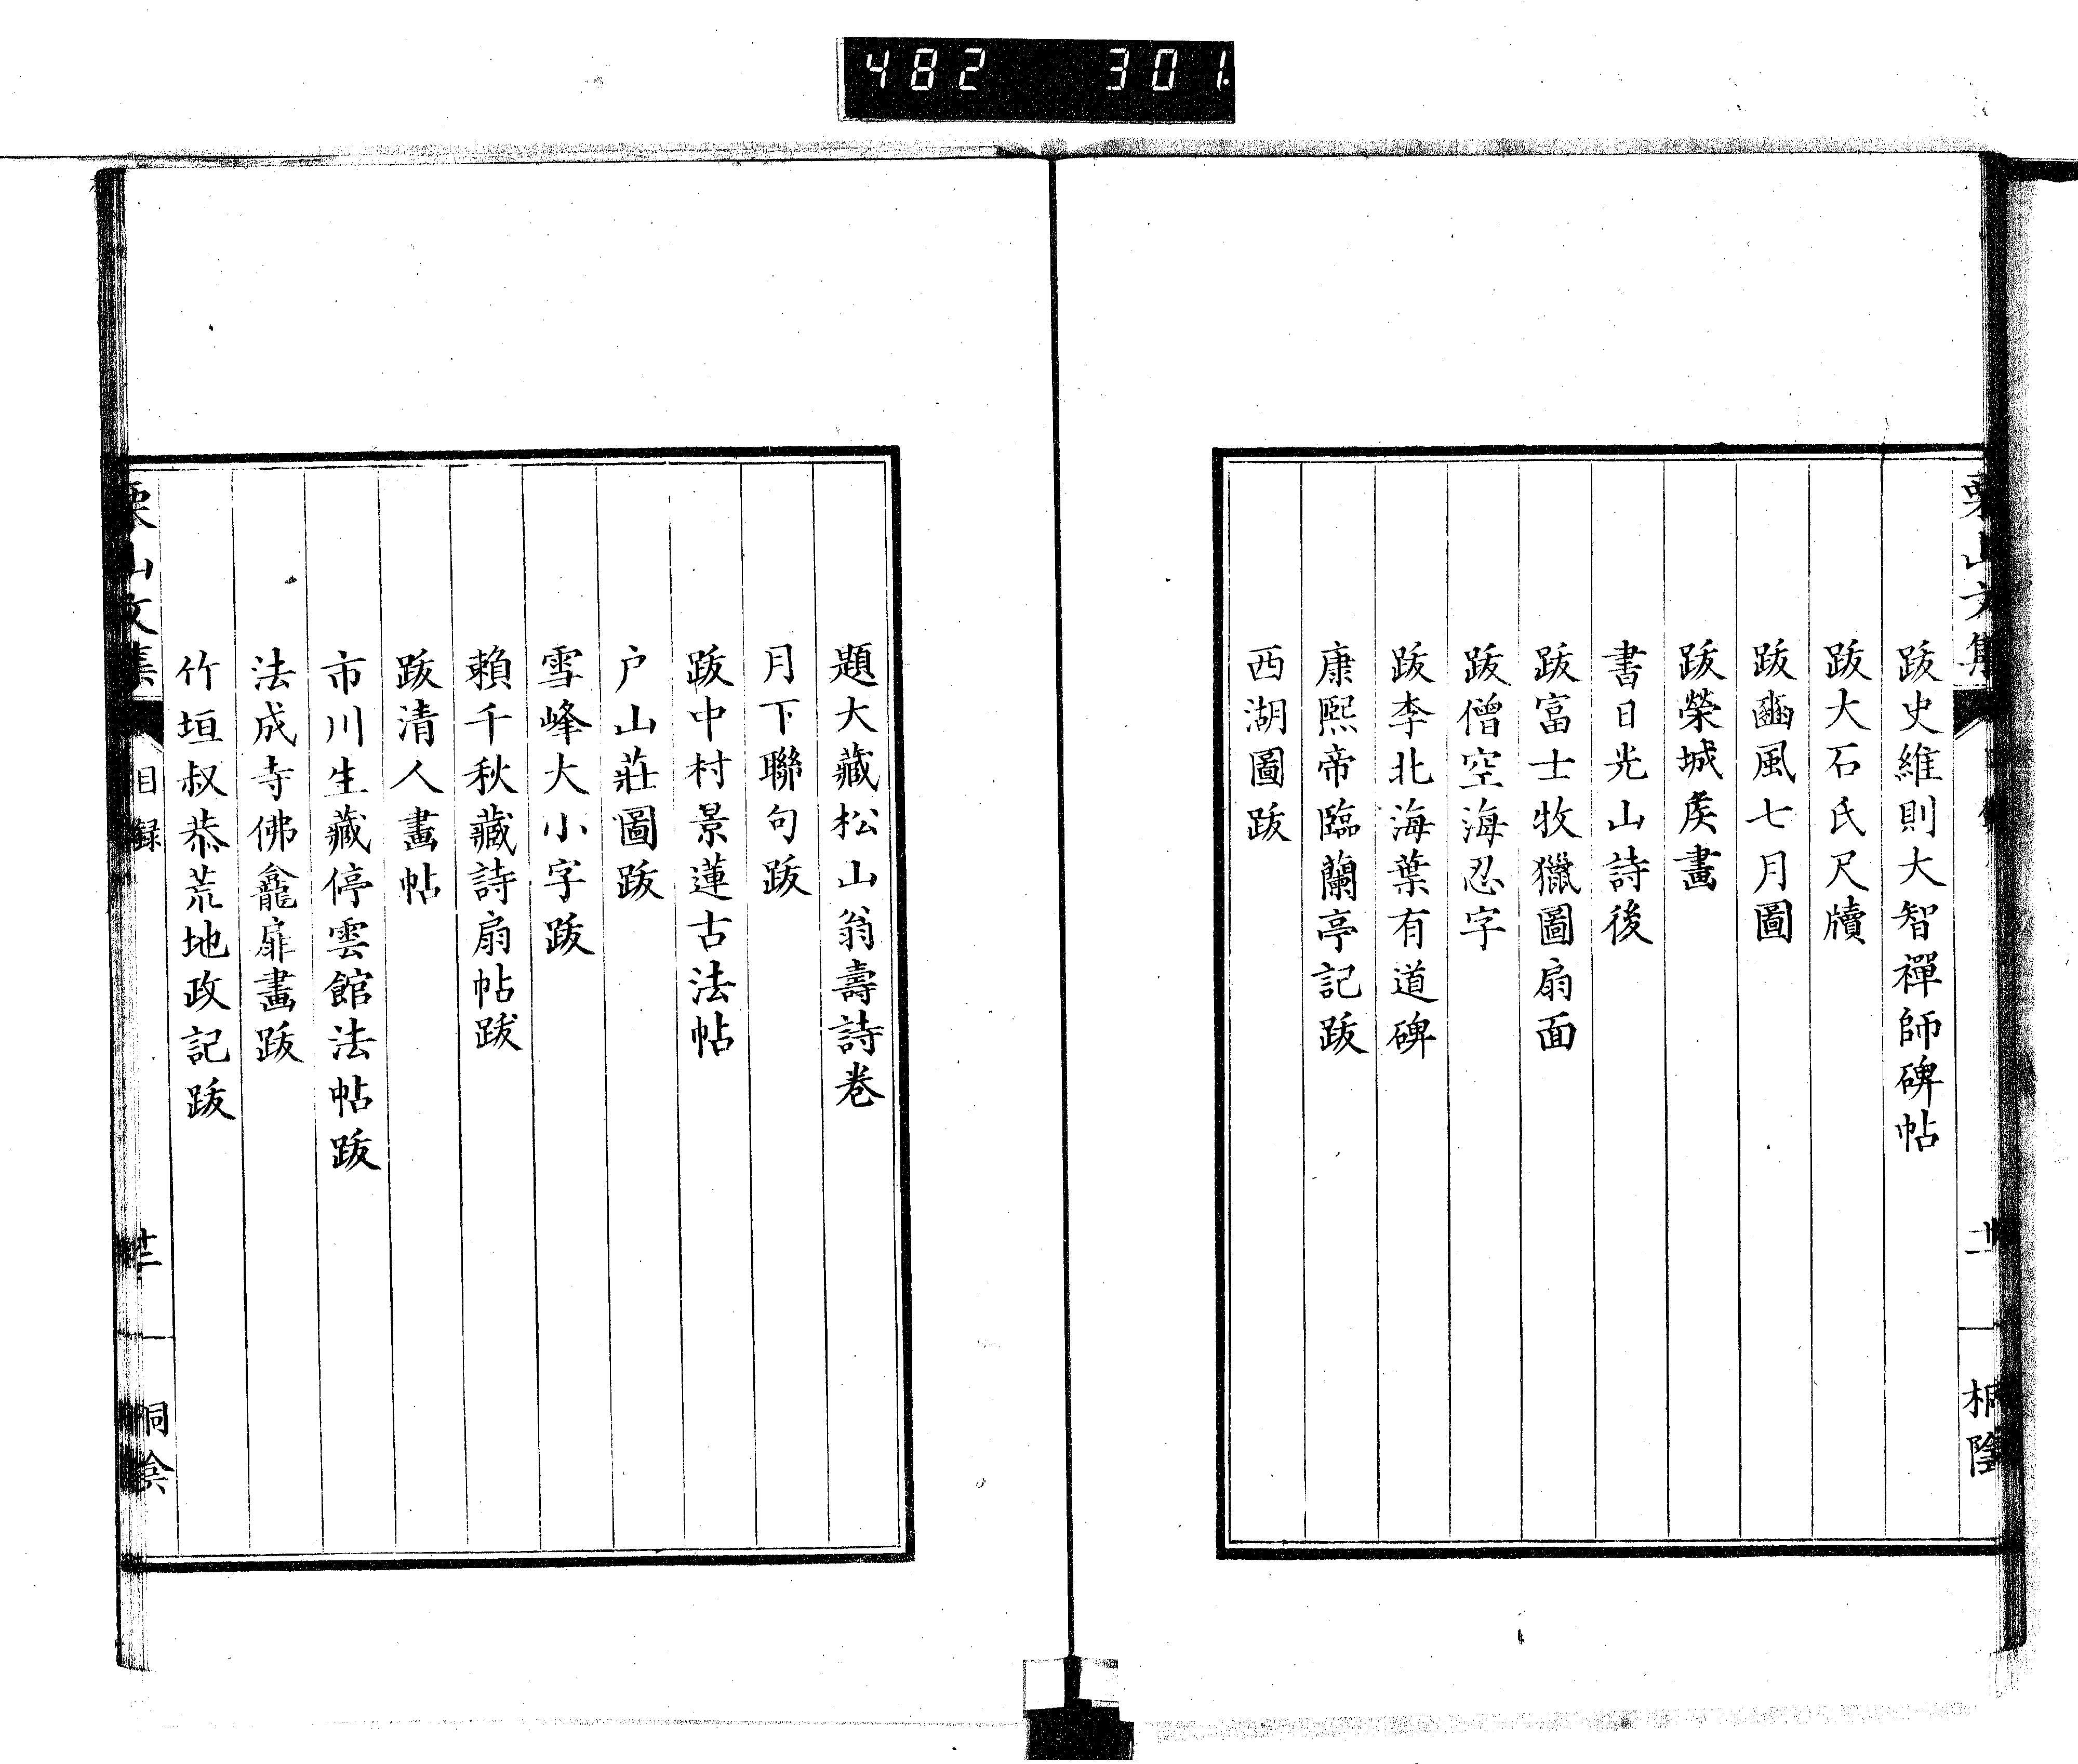 482 301
栗山文集
桐陰
跋史維則大智禪師碑帖
跋大石氏尺牘
跋豳風七月圖
跋榮城矦畫
書日光山詩後
跋富士牧獵圖扇面
跋僧空海忍字
跋李北海葉有道碑
康熙帝臨蘭亭記跋
西湖圖跋
題大藏松山翁壽詩卷
月下聯句跋
跋中村景蓮古法帖
戶山莊圖跋
雪峰大小字跋
賴千秋藏詩扇帖跋
跋清人畫帖
市川生藏停雲館法帖跋
法成寺佛龕扉畫跋
竹垣叔恭荒地政記跋
栗山文集
目録
桐陰